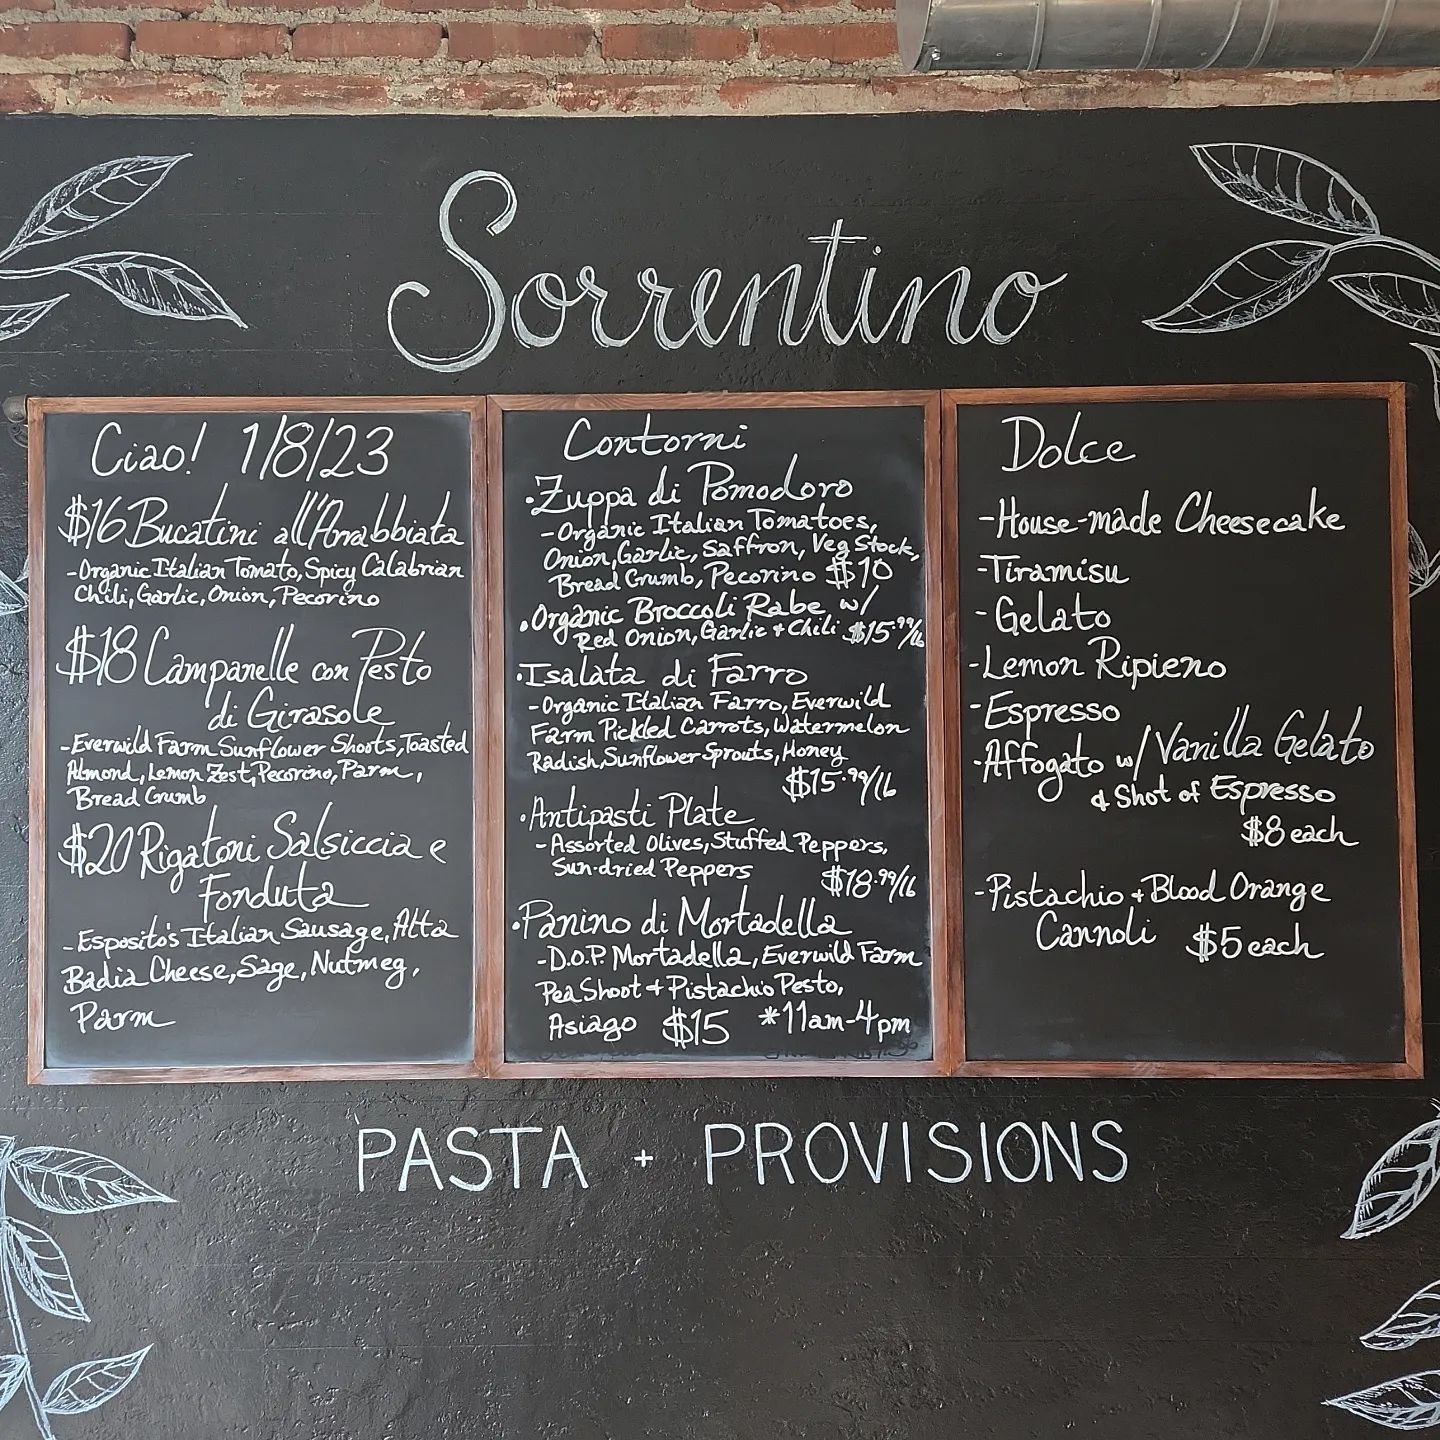 Sorrentino
Ciao! 1/8/23
$16 Bucatini all'Arrabbiata
-Organic Italian Tomato, Spicy Calabrian
Chili, Garlic, Onion, Pecorino
$18 Campanelle con Pesto
di Girasole
-Everwild Farm Sunflower Shoots, Toasted
Almond, Lemon Zest, Pecorino, Parm,
Bread Crumb
$20 Rigatoni Salsiccia e
Fonduta
-Esposito's Italian Sausage, Alta
Badia Cheese, Sage, Nutmeg,
Parm
Contorni
•Zuppa di Pomodoro
-Organic Italian Tomatoes,
Onion, Garlic, Saffron, Veg Stock,
Bread Crumb, Pecorino $10
•Organic Broccoli Rabe w/
Red Onion, Garlic + Chili $15.99/lb
•Isalata di Farro
-Organic Italian Farro, Everwild
Farm Pickled Carrots, Watermelon
Radish, Sunflower Sprouts, Honey
$15.99/lb
•Antipasti Plate
-Assorted Olives, Stuffed Peppers,
Sun-dried Peppers $18.99/lb
•Panino di Mortadella
-D.O.P. Mortadella, Everwild Farm
Pea Shoot + Pistachio Pesto,
Asiago $15 *11am-4pm
Dolce
-House-made Cheesecake
-Tiramisu
-Gelato
-Lemon Ripieno
-Espresso
-Affogato w/ Vanilla Gelato
& Shot of Espresso
$8 each
-Pistachio + Blood Orange
Cannoli $5 each
PASTA + PROVISIONS